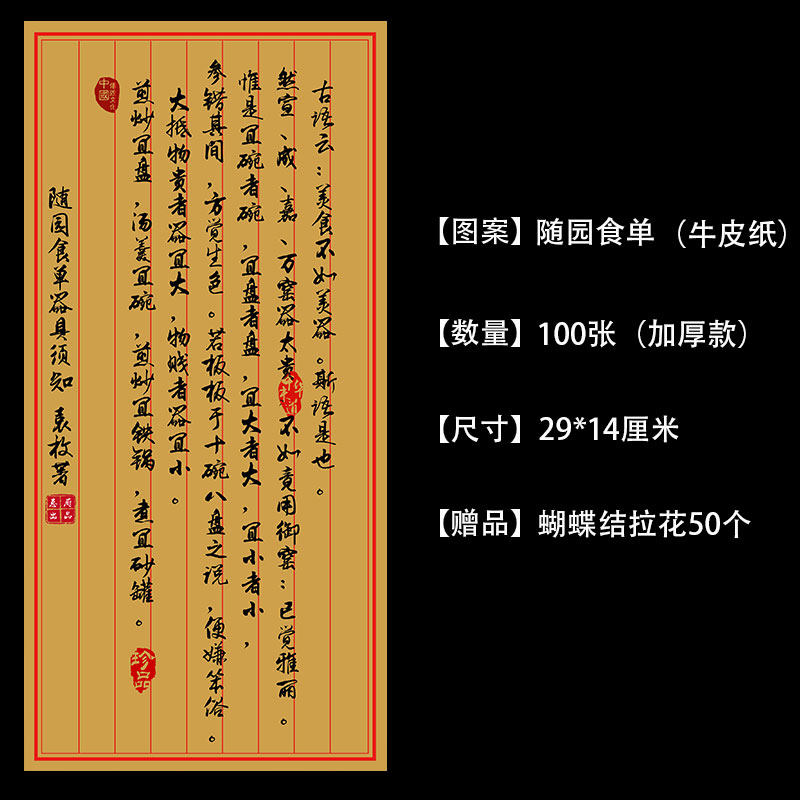 古语云：美食不如美器。斯语是也。
然宣、成、嘉、万窑器太贵不如竟用御窑：已觉雅丽。
惟是宜碗者碗，宜盘者盘，宜大者大，宜小者小，
参错其间，方觉生色。若板板于十碗八盘之说，便嫌笨俗。
大抵物贵者器宜大，物贱者器宜小。
煎炒宜盘，汤羹宜碗，煎炒宜铁锅，煮宜砂罐。
随园食单器具须知 袁枚署
中國
珍品
【图案】随园食单（牛皮纸）
【数量】100张（加厚款）
【尺寸】29*14厘米
【赠品】蝴蝶结拉花50个